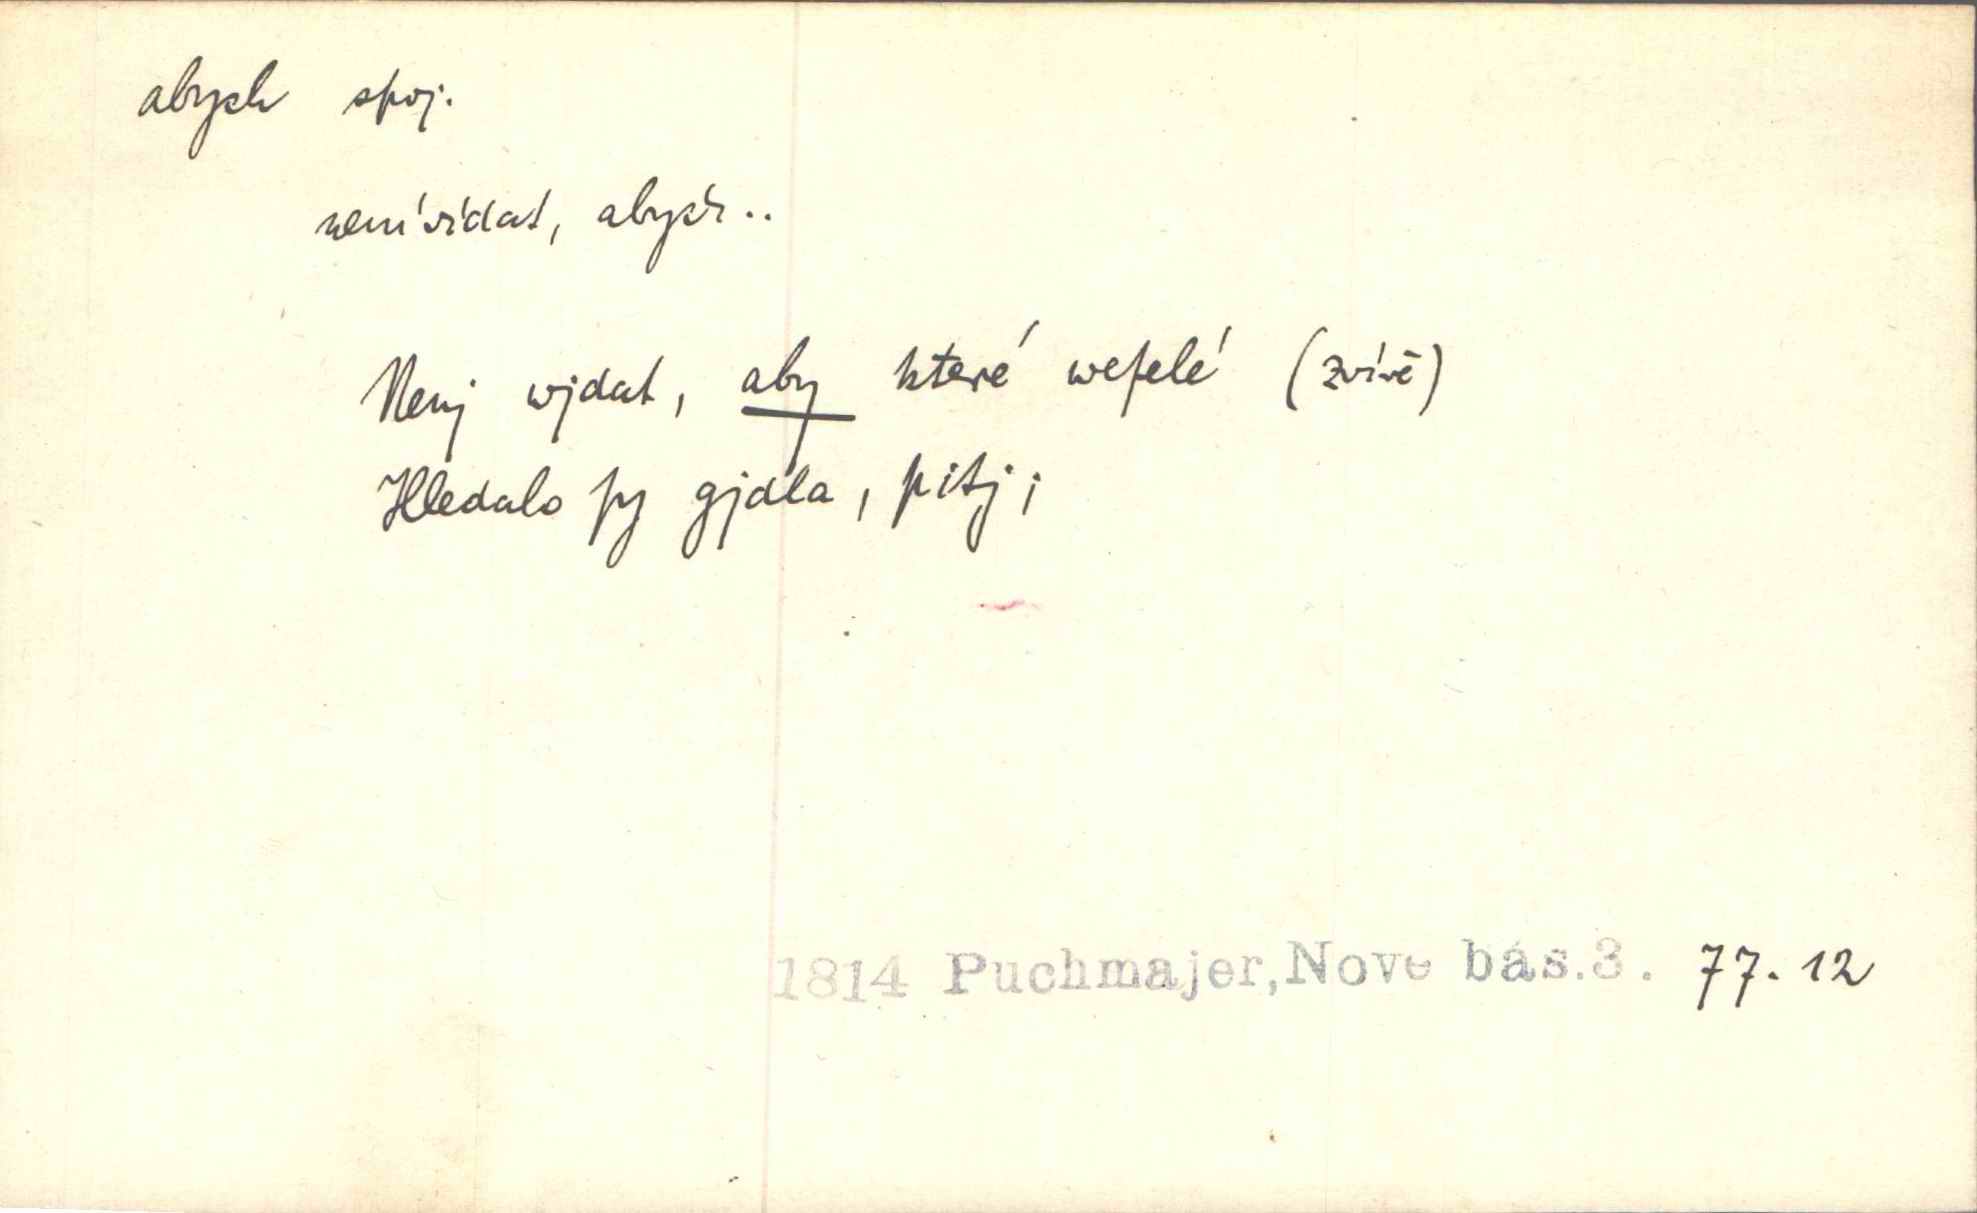 abych spoj.
není vídat, abych..
Nenj wjdat, aby které weſelé (zvíře)
Hledalo ſy gjdla, pitj;
1814 Puchmajer, Nové bás. 3. 77. 12